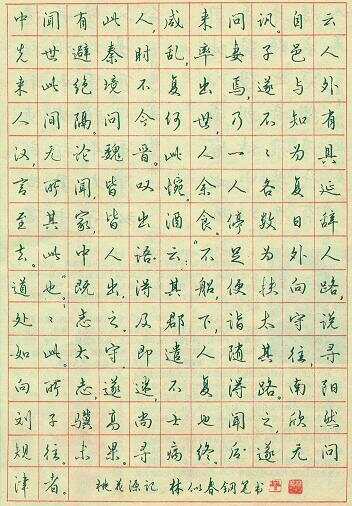 中闻有此人,咸来问讯。自云
先世避秦时乱,率妻子邑人
来此绝境不复出焉,遂与外
人间隔。问今何世,乃不知有
汉,无论魏晋。此人一〻为具
言所闻,皆叹惋。余人各复延
至其家,皆出酒食。停数日辞
去。此中人语云:“不足为外人
道也。”既出,得其船,便扶向路,
处〻志之。及郡下,诣太守说
如此。太守即遣人随其往,寻
向所志,遂迷,不复得路。南阳
刘子骥高尚士也闻之,欣然
规往。未果。寻病终。后遂无问
津者。 桃花源记 林似春钢笔书